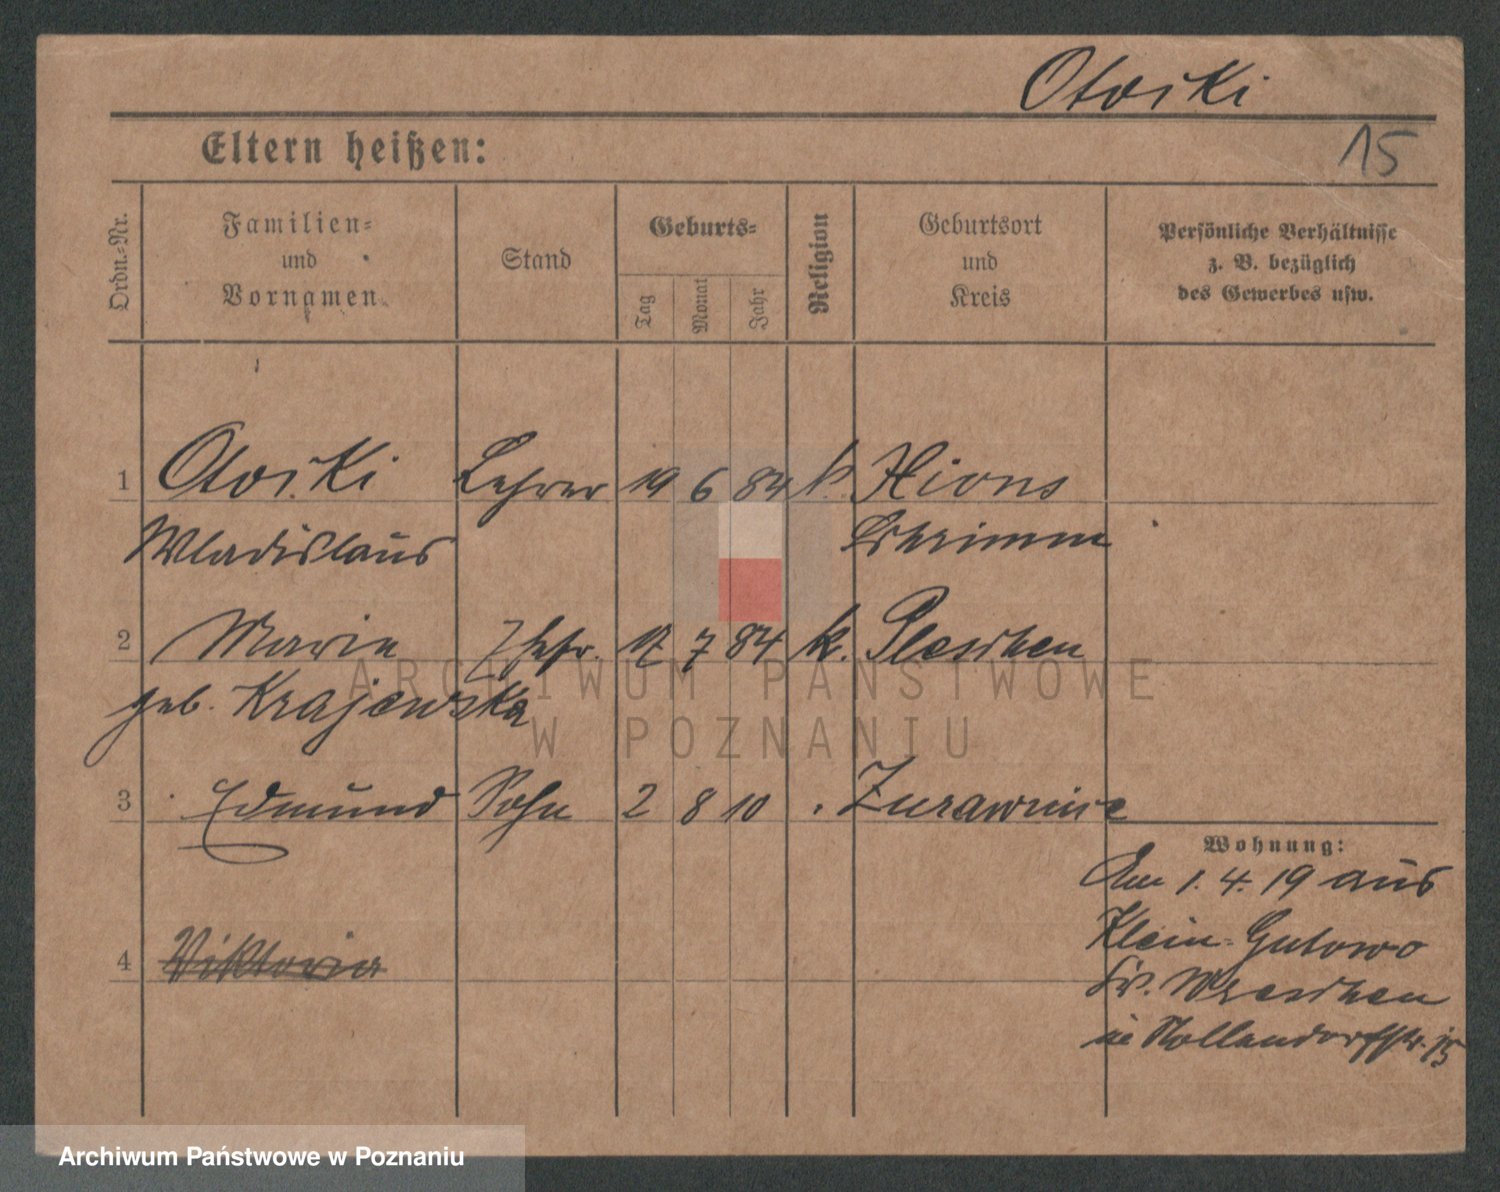 Otoski
15
Eltern heißen:
Ordn.-Nr.
Familien-
und
Vornamen
Stand
Geburts-
Tag
Monat
Jahr
Religion
Geburtsort
und
Kreis
Persönliche Verhältnisse
z. B. bezüglich
des Gewerbes usw.
1 Otoski Lehrer 19 6 84 k. Xions
Wladislaus Schrimm
2 Marie Ehefr. 17 7 84 k. Pleschen
geb. Krajewska
3 Edmund Sohn 2 8 10
Wohnung:
Am 1. 4. 19 aus
Klein-Gutowo
Kr. Wreschen
in Nollendorfstr. 15
4 Viktoria
ARCHIWUM PAŃSTWOWE
W POZNANIU
Archiwum Państwowe w Poznaniu